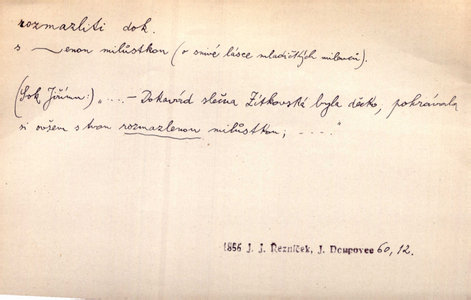 rozmazliti dok.
s ~enou milůstkou (v snivé lásce mladičkých milenců).
(Sok Jiřímu:) „.... – Dokavád slečna Zítkovská byla děcko, pohrávala
si ovšem s tvou rozmazlenou milůstkou; ....“
1856 J. J. Řezníček, J. Doupovec 60, 12.